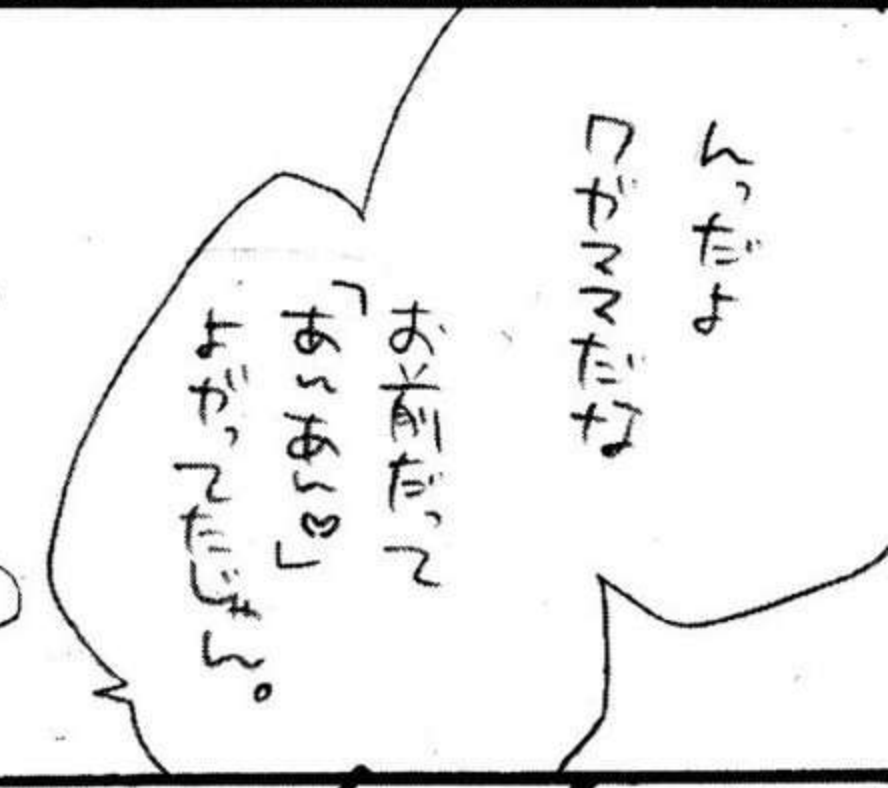 んっだよ
ワガママだな
お前だって
「あ〜あ〜♡」
よがってたじゃん。